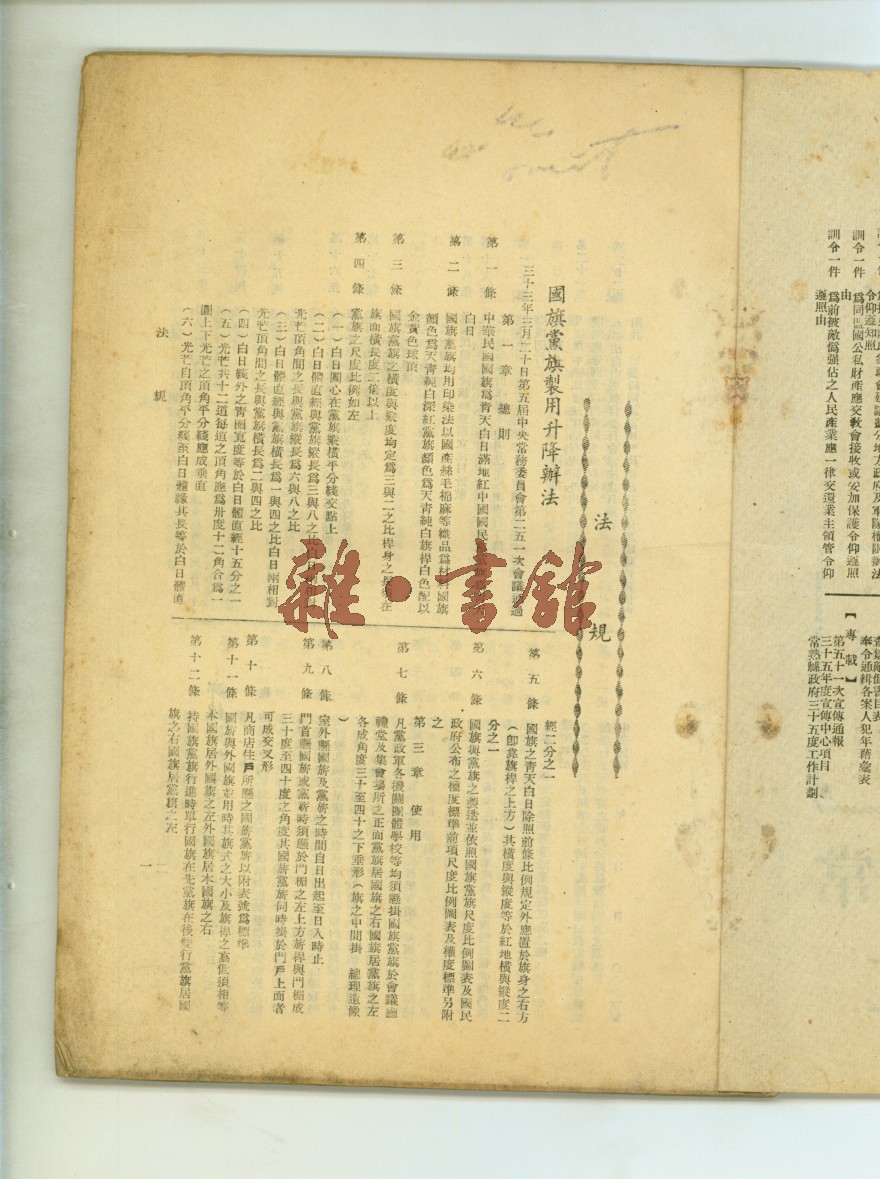 訓令一件
訓令一件 爲同盟國公私財產應交敎會接收或妥加保護令仰遵照
由
訓令一件 爲前被敵僞強佔之人民產業應一律交還業主領管令仰
遵照由
【專載】
奉令通緝各案人犯年藉臺表
第五十一次宣傳通報
三十五年度宣傳中心項目
常熟縣政府三十五度工作計劃
法規
國旗黨旗製用升降辦法
三十三年三月二十日第五屆中央常務委員會第二五一次會議通過
第一章 總則
第一條 中華民國國旗爲靑天白日滿地紅中國國民黨
白日
第二條 國旗黨旗均用印染法以國產絲毛棉麻等織品爲材料國旗
顏色爲天靑純白深紅黨旗顏色爲天靑純白旗桿白色配以
金黃色球頂
第三條 國旗黨旗之橫度與縱度均定爲三與二之比桿身之長在
旗面橫長度二倍以上
第四條 黨旗之尺度比例如左
(一)白日圓心在黨旗縱橫平分綫交點上
(二)白日體直經與黨旗縱長爲三與八之比
光芒頂角間之長與黨旗縱長爲六與八之比
(三)白日體直經與黨旗橫長爲一與四之比白日兩相對
光芒頂角間之長與黨旗橫長爲二與四之比
(四)白日綫外之靑圈寬度等於白日體直經十五分之一
(五)光芒共十二道每道之頂角應爲卅度十二角合爲一
圓上下光芒之頂角平分綫應成垂直
(六)光芒自頂角平分綫至白日體緣其長等於白日體直
法規
經二分之一
第五條 國旗之靑天白日除照前條比例規定外應置於旗身之右方
(卽靠旗桿之上方)其橫度與縱度等於紅地橫與縱度二
分之一
第六條 國旗與黨旗之製造並依照國旗黨旗尺度比例圖表及國民
政府公布之權度標準前項尺度比例圖表及權度標準另附
之
第三章 使用
第七條 凡黨政軍各機關團體學校等均須懸掛國旗黨旗於會議廳
禮堂及集會場所之正面黨旗居國旗之右國旗居黨旗之左
各成角度三十至四十之下垂形(旗之中間掛 總理遺像
)
第八條 室外懸國旗及黨旗之時間自日出起至日入時止
第九條 門首懸國旗或黨旗時須懸於門楣之左上方旗桿與門楣成
三十度至四十度之角度其國旗黨旗同時掛於門戶上面者
可成交叉形
第十條 凡商店住戶所懸之國旗黨旗以附表號爲標準
第十一條 國旗與外國旗並用時其旗式之大小及旗桿之高低須相等
本國旗居外國旗之左外國旗居本國旗之右
第十二條 持國旗黨旗行進時單行國旗在先黨旗在後雙行黨旗居國
旗之右國旗居黨旗之左
一
雜·書館